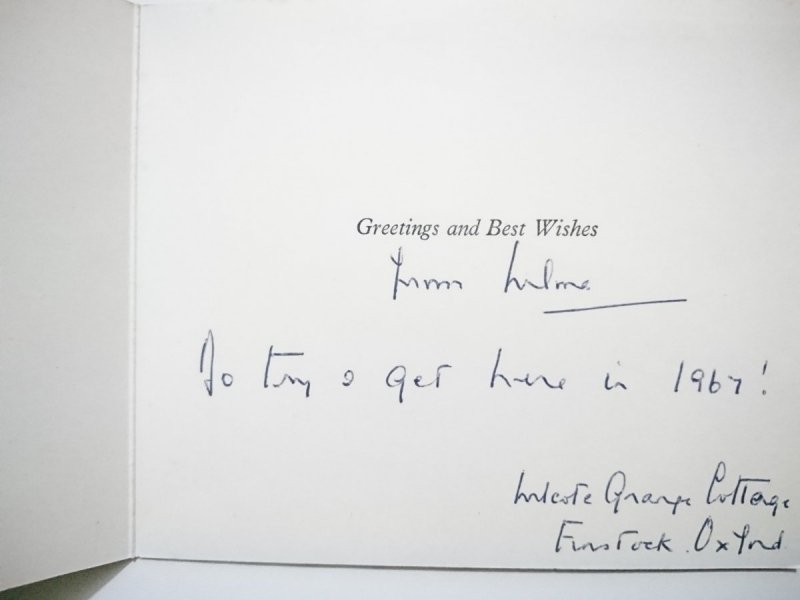 Greetings and Best Wishes
from Wilma
Do try & get here in 1967!
Wilcote Grange Cottage
Finstock. Oxford